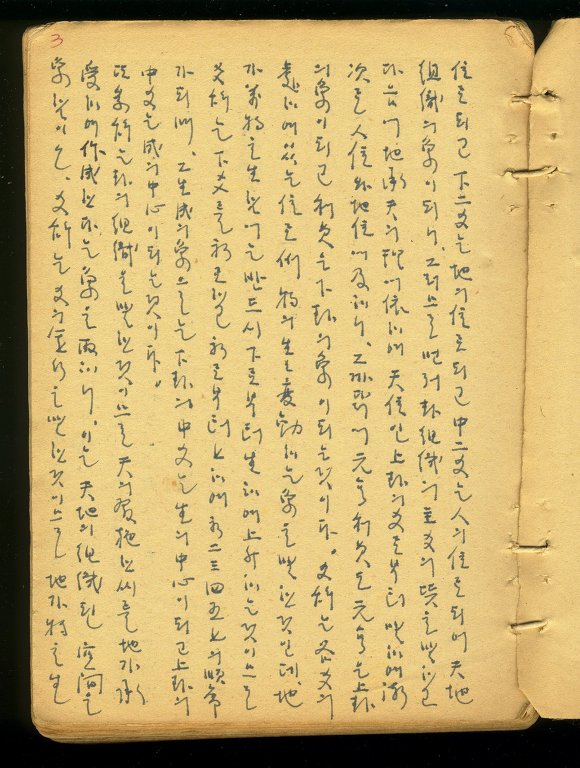 3
位로되고 下二爻는 地의位로되고 中二爻는 人의位로되어 天地
組織의象이되니, 그럼으로 먼저 卦組織의 主爻의 뜻을말하고
다음에 地承天의 理에依하여 天位인 上卦의爻로부터 말하여 漸
次로 人位와地位에及하니, 그까닭에 元亨利貞도 元亨은上卦
의象이되고 利貞은下卦의象이되는것이다。爻辭는 各爻의
處하여있는 位로써 物의 生生變動하는象을 말한것인데, 地
가萬物을生함에는 반드시 下로부터生하여上升하는것이므로
爻辭는 下爻를 初로하고 初로부터 上하여 初二三四五上의順序
가되며, 그生成의象으로는 下卦의 中爻는 生의中心이되고上卦의
中爻는 成의中心이되는것이다。
象辭는卦의組織을말한것이므로 天의 施한씨를 地가承
受하여 作成한다는 象을 하니, 이는 天地의組織된 空間의
象한것이오、爻辭는 爻의 을말한것이므로 地가物을生